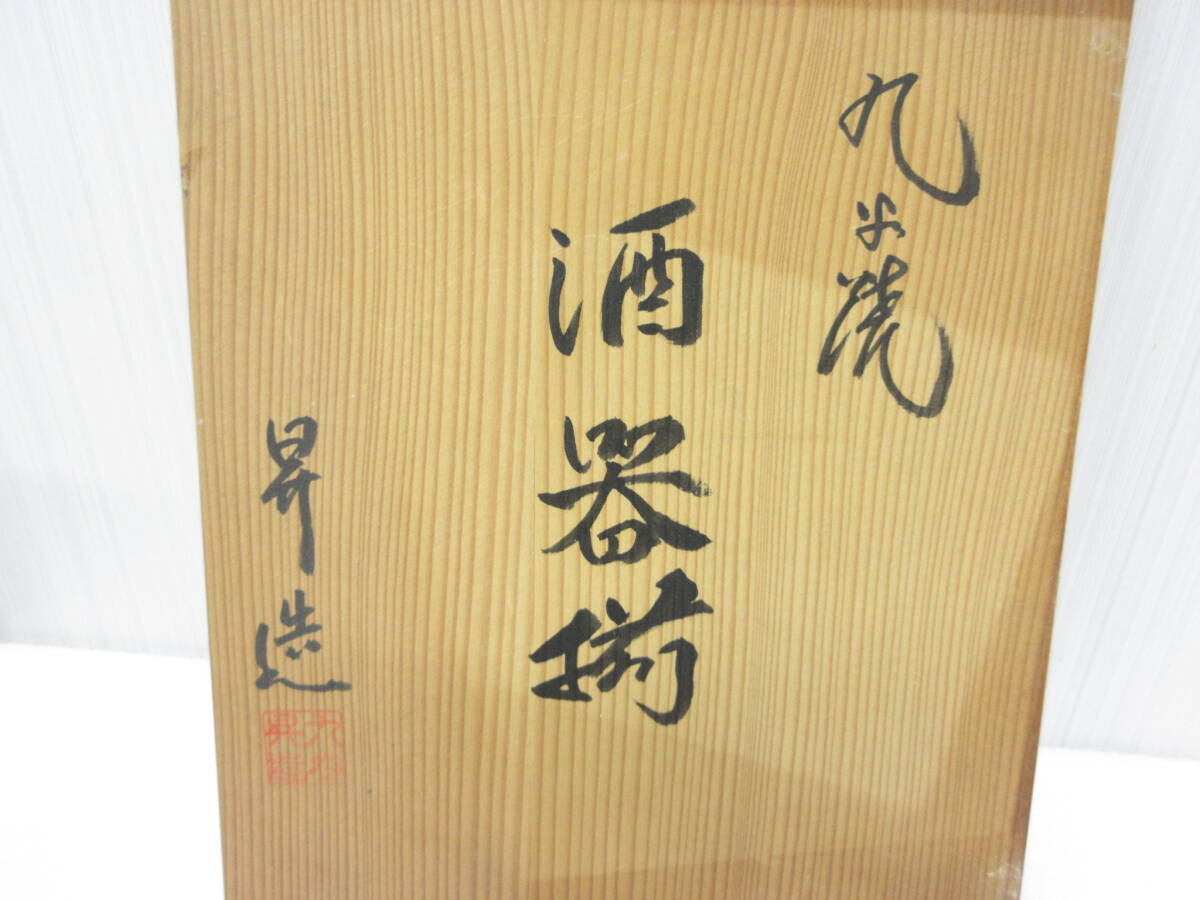 九谷焼
酒器揃
昇造